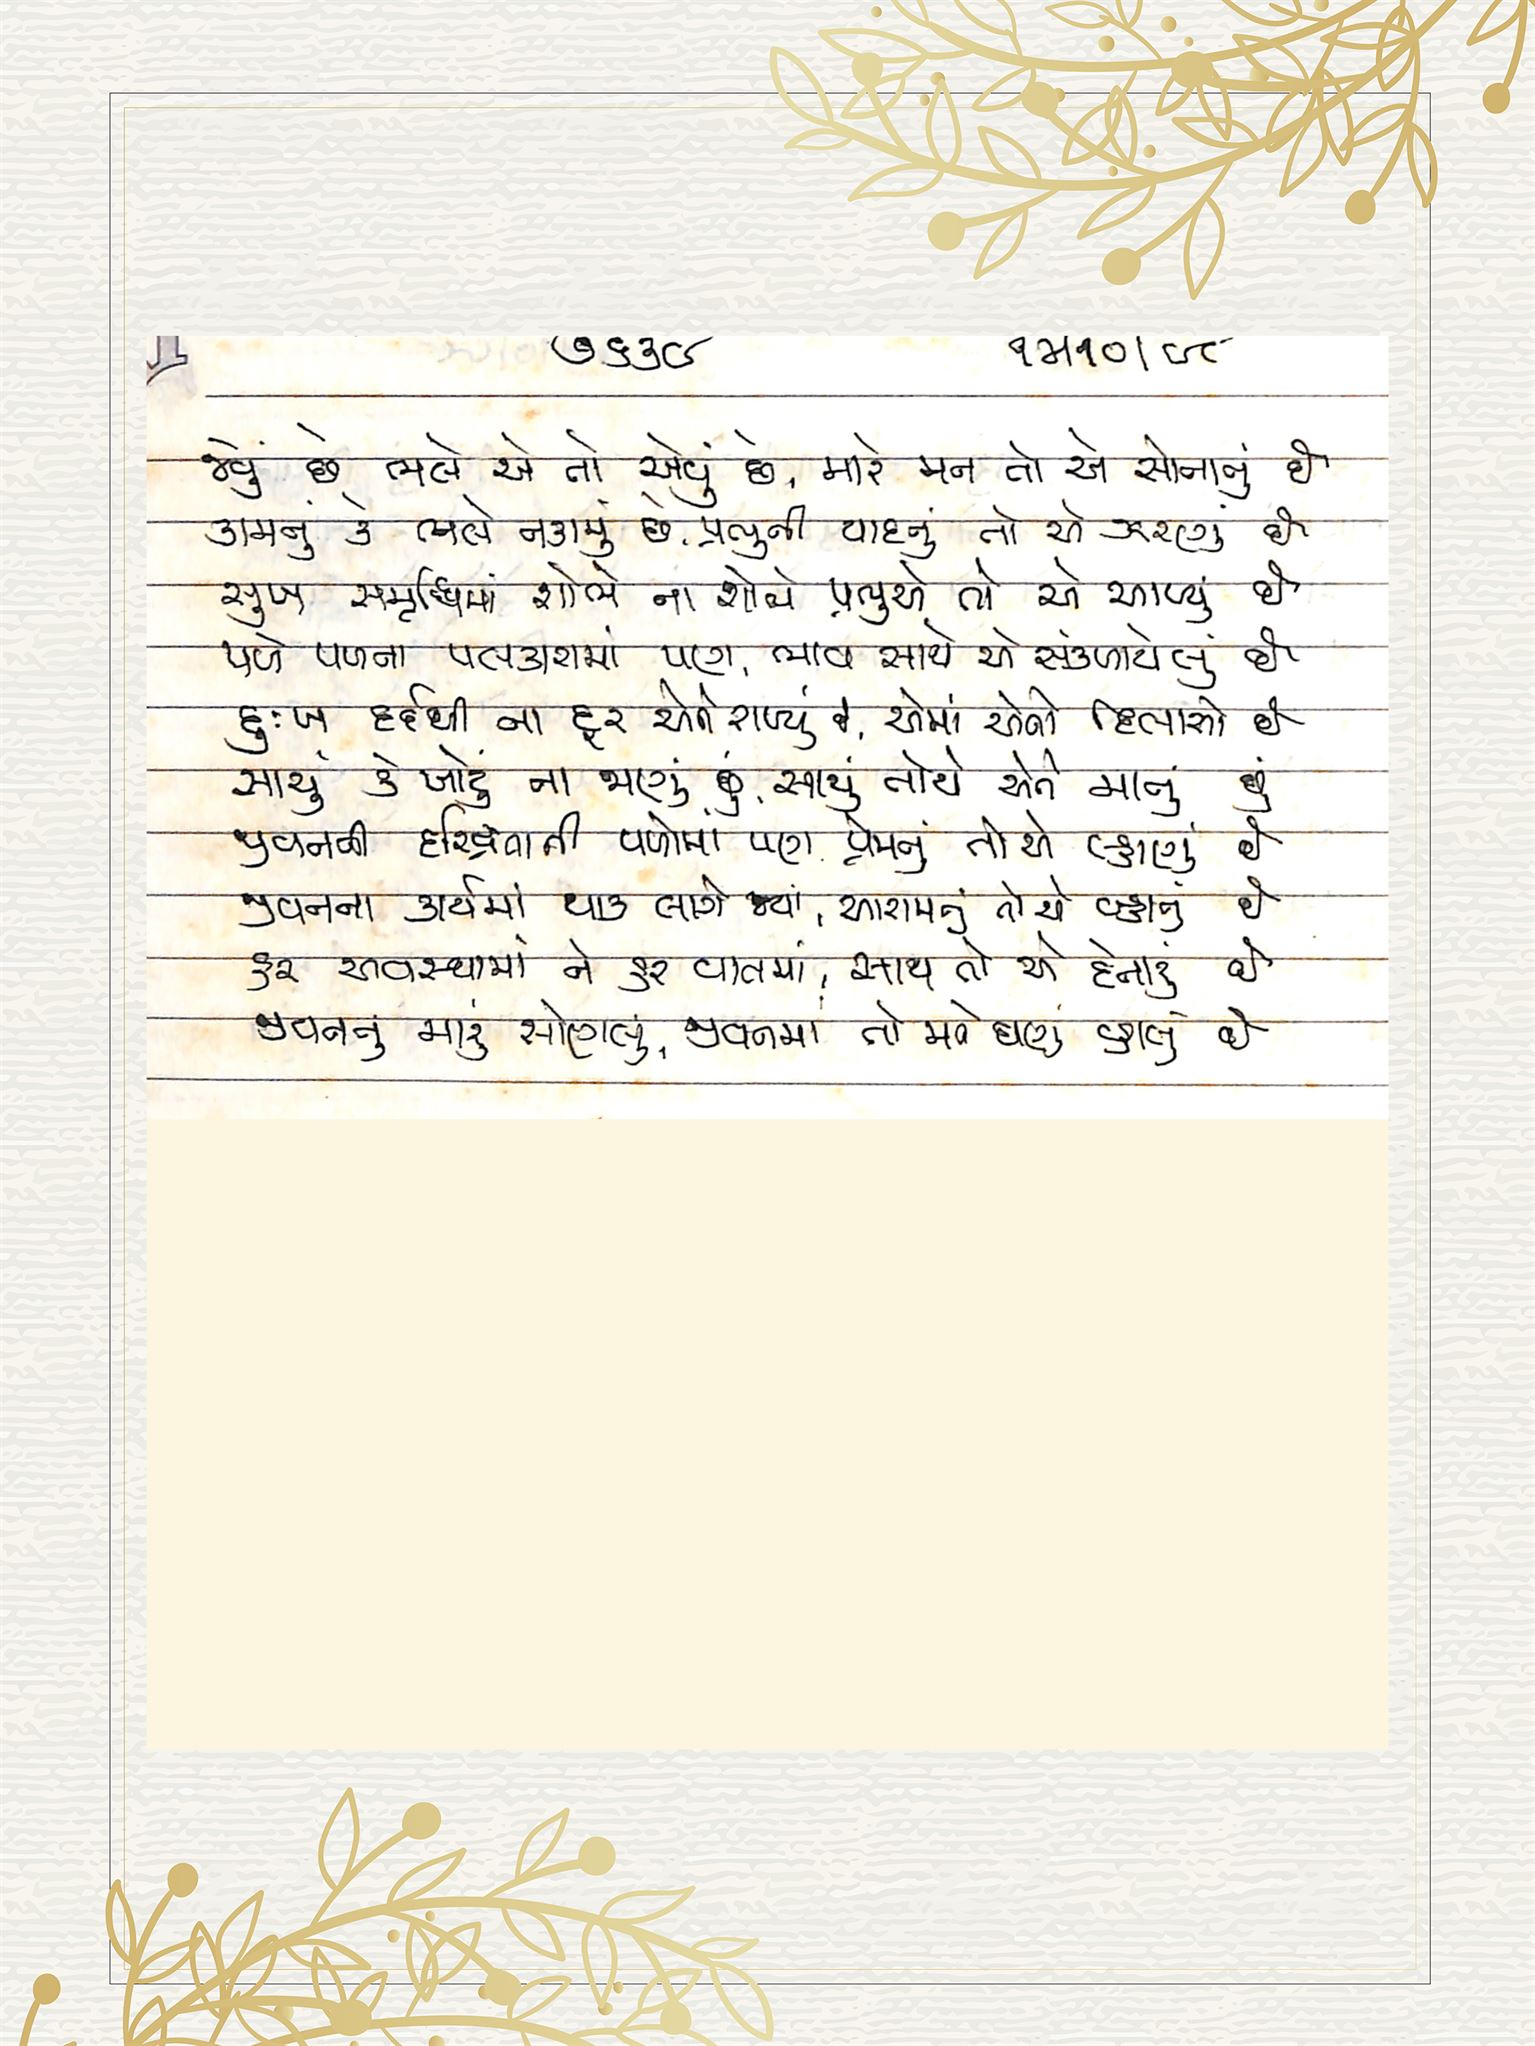 ૭૬૩૯ ૧૫|૧૦|૯૮
જેવું છે ભલે એ તો એવું છે, મારે મન તો એ સોનાનું છે
કામનું કે ભલે નકામું છે, પ્રભુની યાદનું તો એ ઝરણું છે
સુખ સમૃદ્ધિમાં શોભે ના શોભે પ્રભુએ તો એ આપ્યું છે
પળે પળના પલકારામાં પણ, ભાવ સાથે એ સંકળાયેલું છે
દુઃખ દર્દથી ના દૂર એને રાખ્યું છે, એમાં એનો હિસ્સો છે
સાચું કે ખોટું ના જાણું છું, સાચું તોયે એને માનું છું
જીવનની હરિયાળી પળોમાં પણ પ્રેમનું તો એ લ્હાણું છે
જીવનના કાર્યમાં થાક લાગે જ્યાં, આરામનું તો એ બ્હાનું છે
હર અવસ્થામાં ને હર વાતમાં, સાથ તો એ દેનારું છે
જીવનનું મારું સોણલું, જીવનમાં તો મને ઘણું વ્હાલું છે